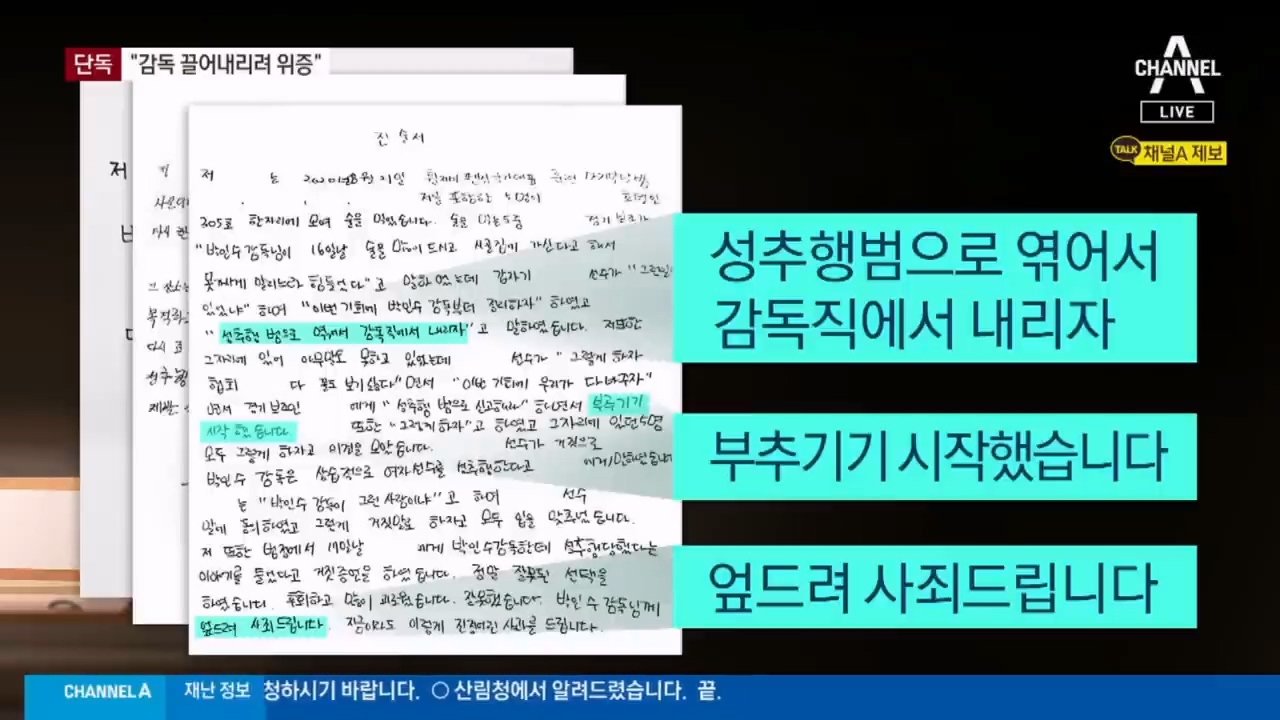 단독 "감독 끌어내리려 위증"
CHANNEL A
LIVE
TALK 채널A 제보
진술서
저 는
305호 한자리에 모여 술을 먹었습니다.
"박인수 감독님이 16일날 술을 많이 드시고 시골집에 가신다고 해서
못가게 말리느라 힘들었다"고 말하였는데 갑자기 선수가
하며 "이번 기회에 박인수 감독부터 정리하자" 하였고
"성추행 범으로 엮어서 감독직에서 내리자"고 말하였습니다. 저또한
그자리에 있어 아무말도 못하고 있었는데 선수가 "그렇게 하자
협회 다 꼴도 보기싫다" 면서 "이번 기회에 우리가 다 바꾸자"
면서 경기보조인 에게 "성추행 범으로 신고해라" 하면서 부추기기
시작 했습니다. 또한 "그렇게 하자"고 하였고 그자리에 있던 5명
모두 그렇게 하자고 의견을 모았습니다. 선수가 거짓으로
박인수 감독은 상습적으로 여자선수를 성추행한다고
는 "박인수 감독이 그런 사람이냐"고 하며 선수
말에 동의하였고 그렇게 거짓말로 하자고 모두 입을 맞추었습니다.
저 또한 법정에서 17일날 에게 박인수감독한테 성추행당했다는
이야기를 들었다고 거짓증언을 하였습니다. 정말 잘못된 선택을
하였습니다. 후회하고 많이 괴로웠습니다. 잘못했습니다. 박인수 감독님께
엎드려 사죄드립니다. 지금이라도 이렇게 진정어린 사과를 드립니다.
성추행범으로 엮어서
감독직에서 내리자
부추기기 시작했습니다
엎드려 사죄드립니다
CHANNEL A 재난 정보 청하시기 바랍니다. ○ 산림청에서 알려드렸습니다. 끝.